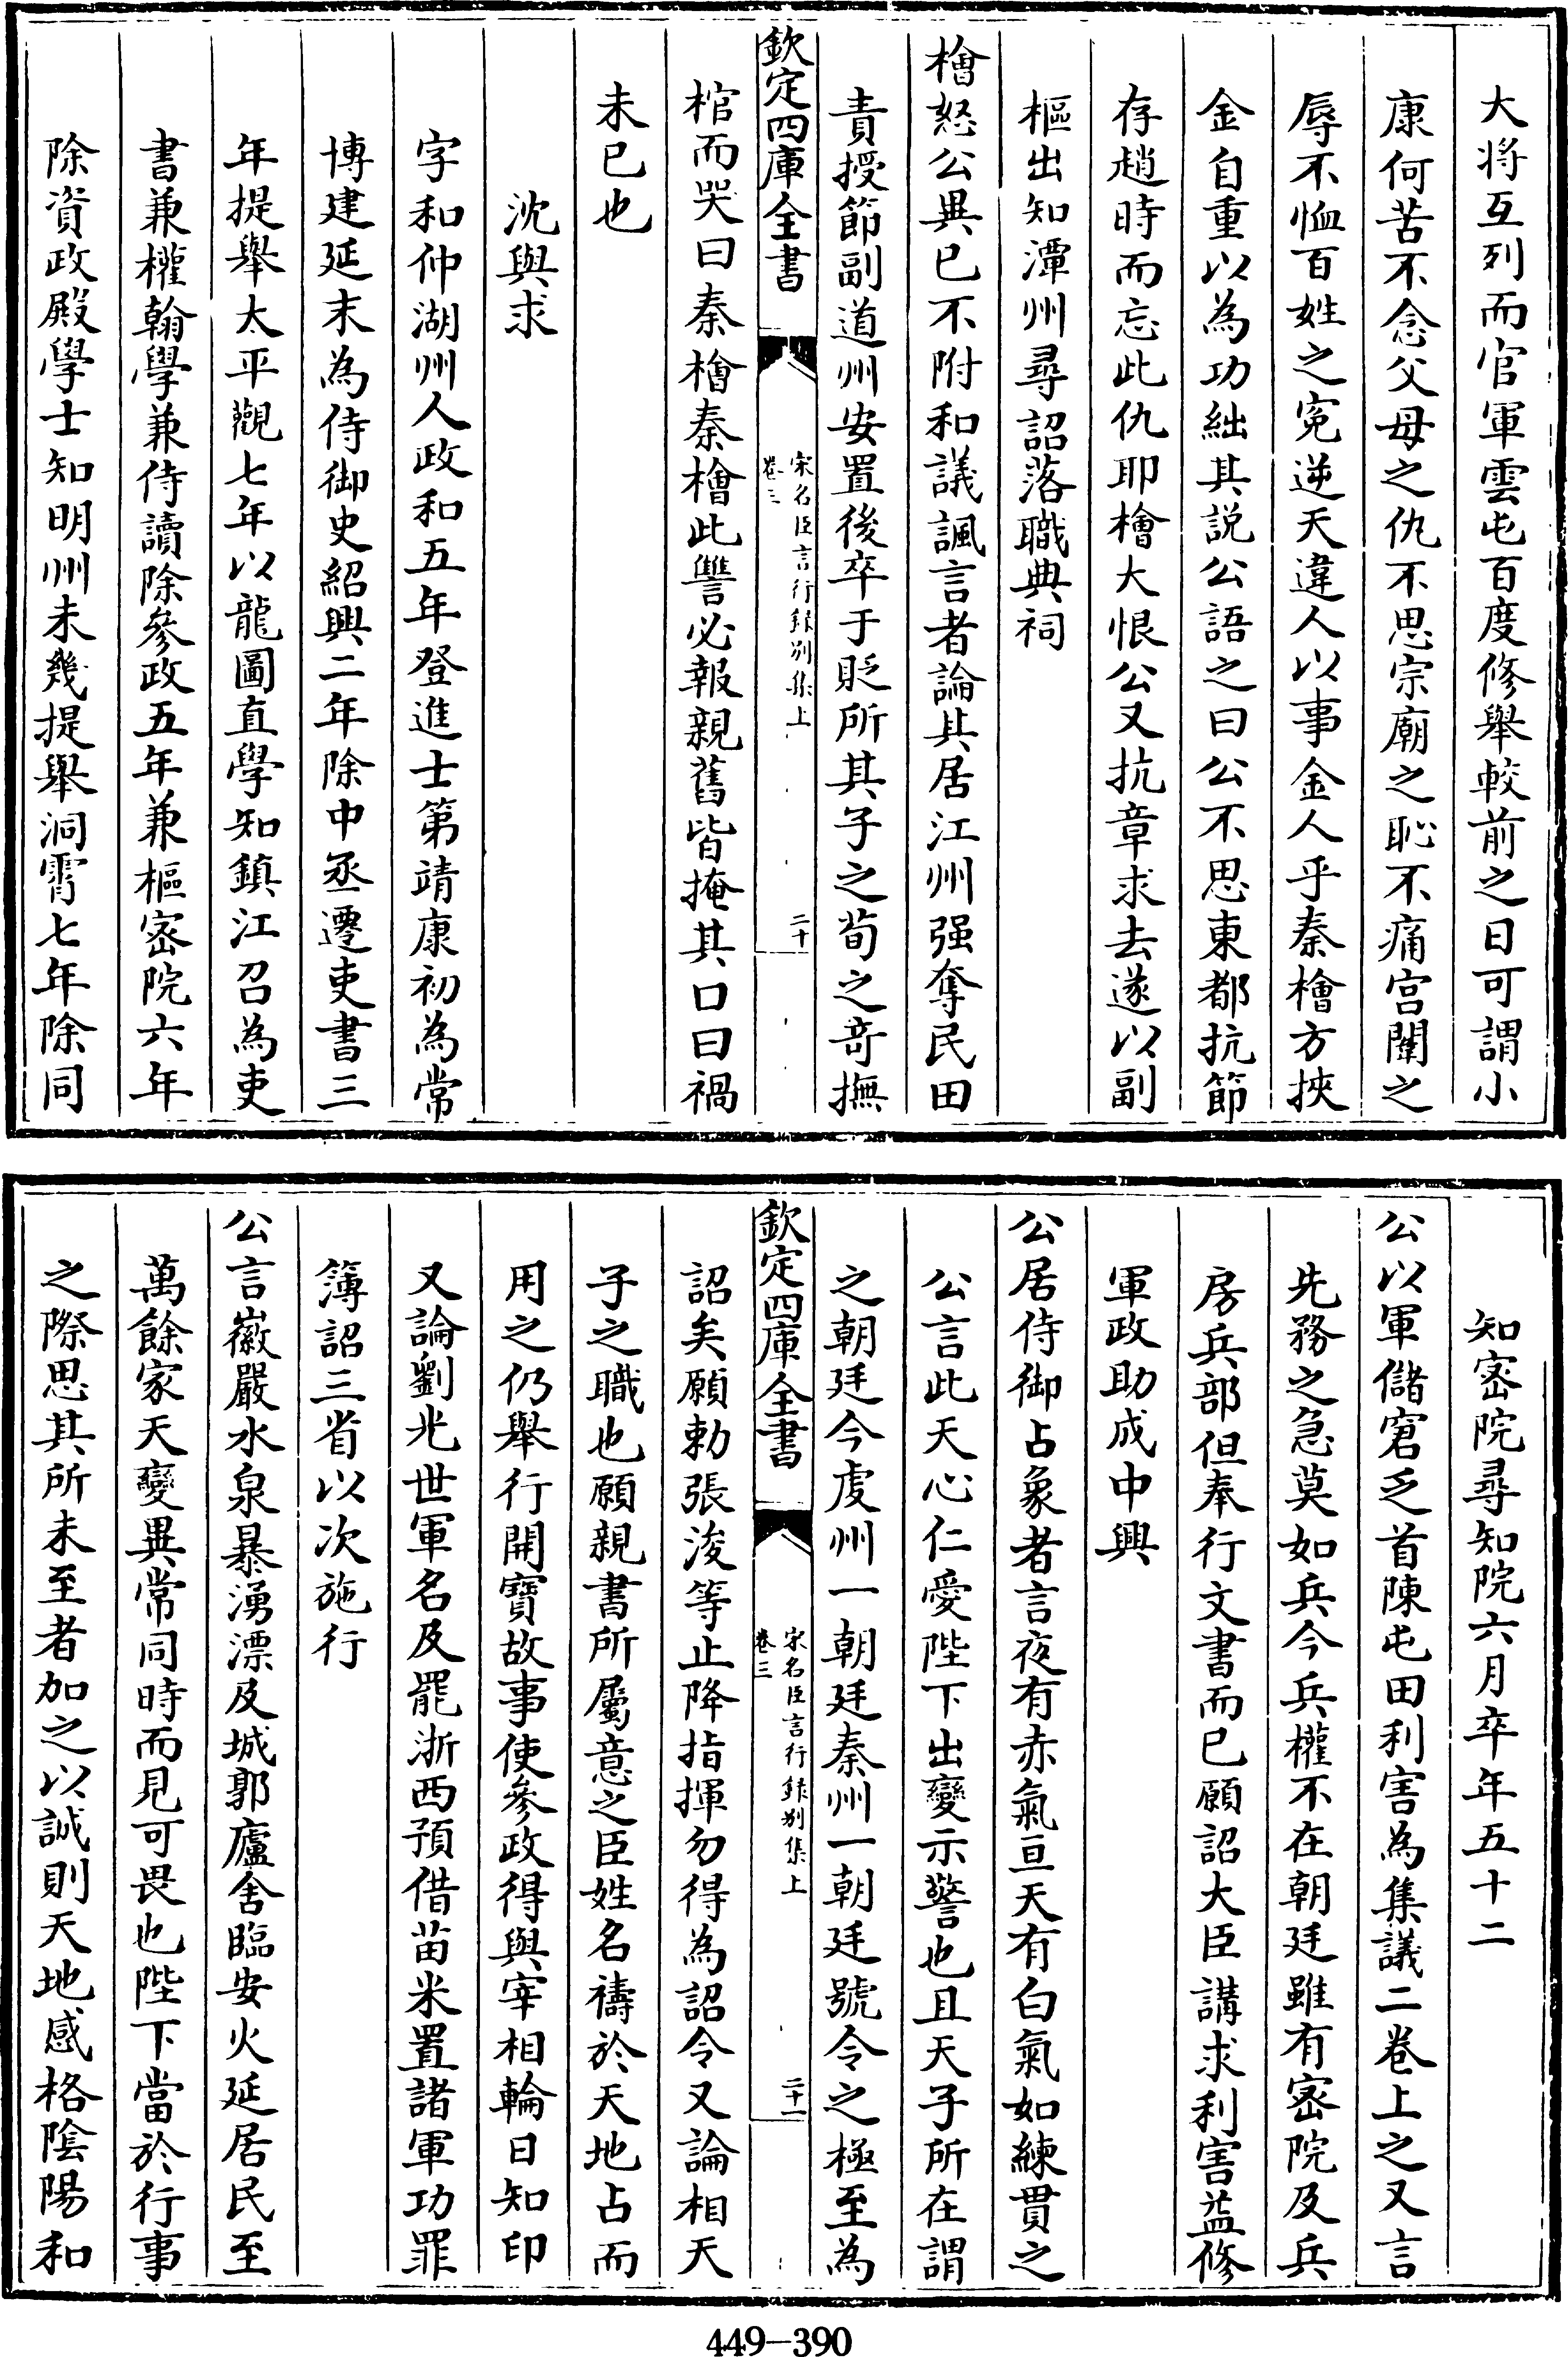 大将互列而官軍雲屯百度修舉較前之日可謂小
康何苦不念父母之仇不思宗廟之恥不痛宫闈之
辱不恤百姓之寃逆天違人以事金人乎秦檜方挾
金自重以為功絀其説公語之曰公不思東都抗節
存趙時而忘此仇耶檜大恨公又抗章求去遂以副
樞出知潭州尋詔落職典祠
檜怒公異已不附和議諷言者論其居江州强奪民田
責授節副道州安置後卒于貶所其子之荀之竒撫
欽定四庫全書
宋名臣言行録别集上
卷三
二十
棺而哭曰秦檜秦檜此讐必報親舊皆掩其口曰禍
未已也
沈與求
字和仲湖州人政和五年登進士第靖康初為常
博建延末為侍御史紹興二年除中丞遷吏書三
年提舉太平觀七年以龍圖直學知鎮江召為吏
書兼權翰學兼侍讀除參政五年兼樞宻院六年
除資政殿學士知明州未幾提舉洞霄七年除同
知宻院尋知院六月卒年五十二
公以軍儲窘乏首陳屯田利害為集議二巻上之又言
先務之急莫如兵今兵權不在朝廷雖有宻院及兵
房兵部但奉行文書而已願詔大臣講求利害益修
軍政助成中興
公居侍御占象者言夜有赤氣亘天有白氣如練貫之
公言此天心仁愛陛下出變示警也且天子所在謂
之朝廷今虔州一朝廷秦州一朝廷號令之極至為
欽定四庫全書
宋名臣言行録别集上
卷三
二十一
詔矣願勅張浚等止降指揮勿得為詔令又論相天
子之職也願親書所屬意之臣姓名禱於天地占而
用之仍舉行開寶故事使參政得與宰相輪日知印
又論劉光世軍名及罷浙西預借苗米置諸軍功罪
簿詔三省以次施行
公言徽嚴水泉暴湧漂及城郭廬舍臨安火延居民至
萬餘家天變異常同時而見可畏也陛下當於行事
之際思其所未至者加之以誠則天地感格陰陽和
449-390